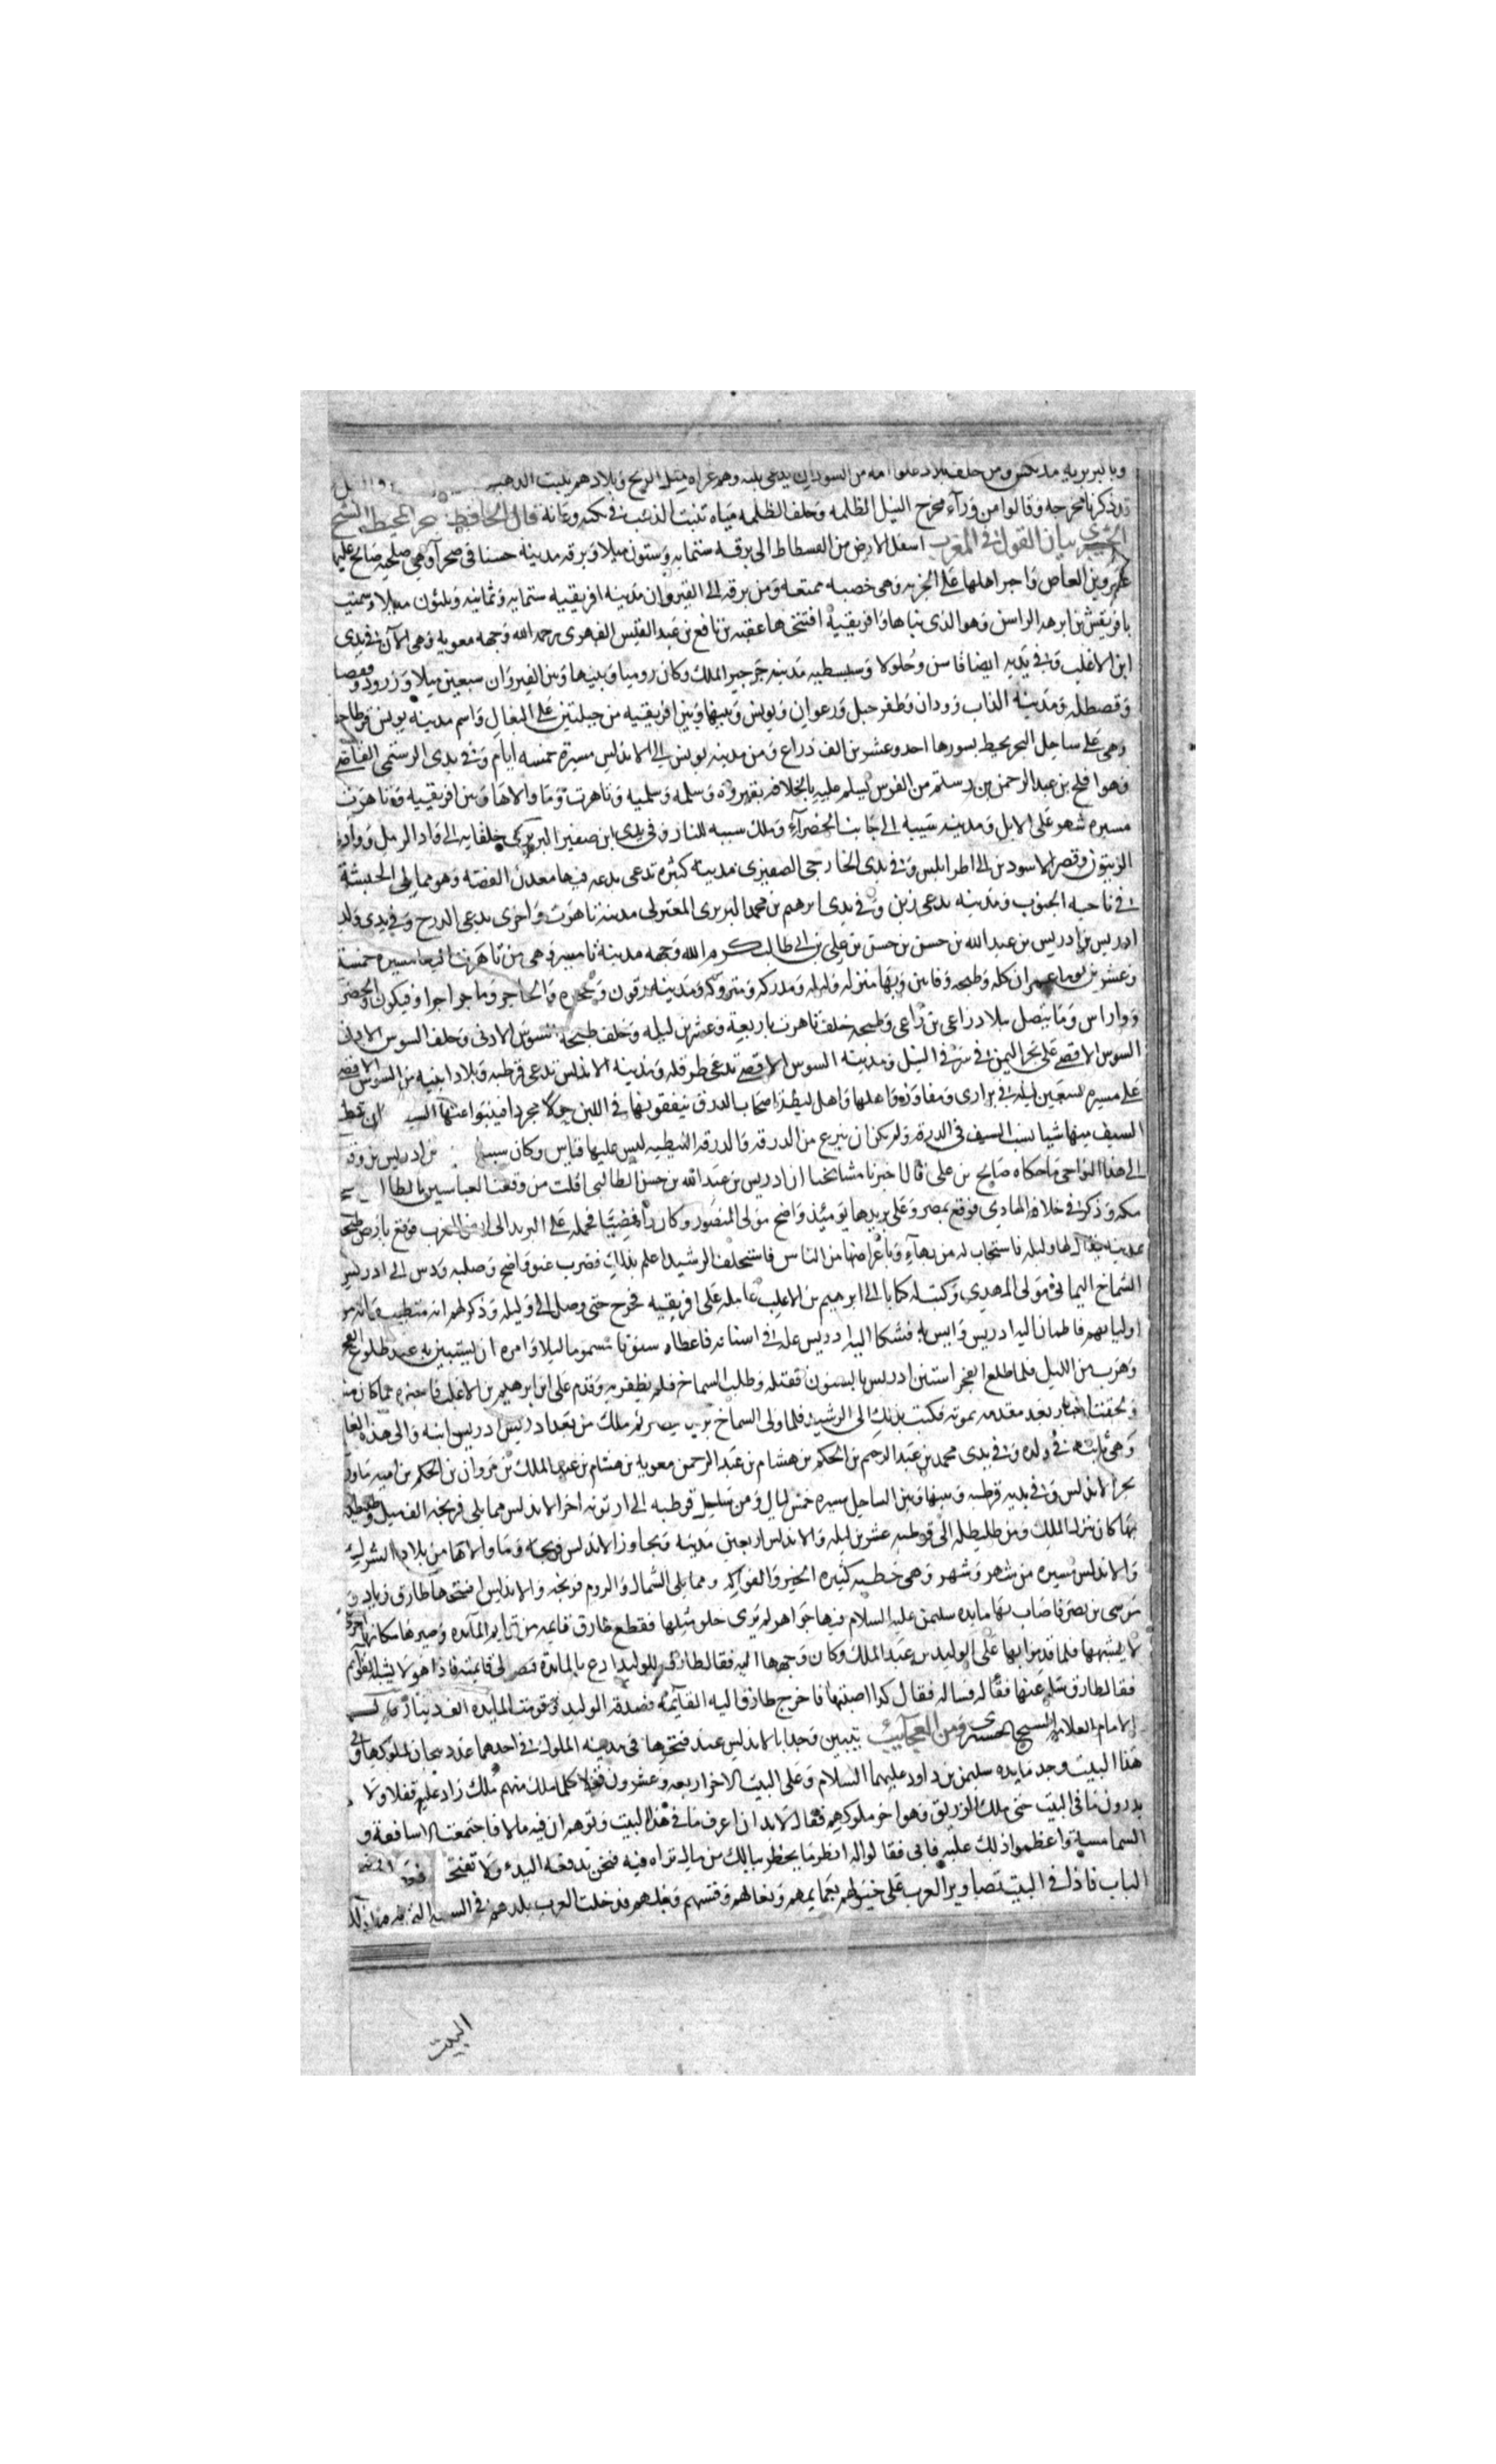 وبالبربرية مديكس ومن خلف بلاد علوا امه من السودان يدعى بلنه وهم عراه مثل الزنج وبلادهم تنبت الذهب
قد ذكرنا مخرجه وقالوا من ورآء مخرج النيل الظلمه وخلف الظلمه مياه تنبت الذهب في كنه وغانة قال الحافظ بحر المحيط الشيخ
بيان القول في المغرب اسفل الارض من الفسطاط الى برقه ستمايه وستون ميلا وبرقه مدينة حسنا في صحرآء وهي صلحيه صالح عليها
عمرو بن العاص واجر اهلها على الجزيه وهي خصبه ممتعه ومن برقه الى القيروان مدينه افريقيه ستمايه وثمانيه وثلثون ميلا وسميت
بافريقيش بن ابرهه الرايس وهو الذى بناها وافريقية افتتحها عقبه بن نافع بن عبد القيس الفهرى رحمه الله وجهه معويه وهي الآن في يدى
ابن الاغلب وفي يديه ايضا فاس وجلولا وسبيطيه مدينه جرجير الملك وكان روميا وبينها وبين القيروان سبعين ميلا وزرود وقفصا
وقصطله ومدينه الغاب زودان وطفرجيل وزغوان وتونس وبينها وبين افريقيه مرحلتين على البغال واسم مدينه تونس قرطاجنه
وهى على ساحل البحر يحيط بسورها احد وعشرين الف ذراع ومن مدينه تونس الى الاندلس مسيرة خمسه ايام وفي يدى الرستمى القاضى
وهو افلح بن عبد الرحمن بن رستم من الفرس يسلم عليه بالخلافه بتهروه وسلمه وسلميه وتاهرت وما والاها وبين افريقيه وتاهرت
مسيره شهر على الابل ومدينه سيبه الى جانب الخضرآء وملك سيبه للنار وفي يدى ابن صفير البربرى خلفايه الى واد الرمل وواد
الزيتون وقصر الاسود بن الى اطرابلس وفي يدى الخارجى الصفيرى مدينه كبيره تدعى بدعه فيها معدن الفضه وهو مما يلي الحبشة
في ناحيه الجنوب ومدينه تدعى زين وفي يدى ابرهيم بن محمد البربرى المعتزلى مدينة تاهرت واخرى تدعى الدرج وفي يدى ولد
ادريس بن ادريس بن عبد الله بن حسن بن حسن بن علي بن ابي طالب كرم الله وجهه مدينة تامسير وهى من تاهرت اليها مسيرة خمسة
وعشرين وطنجه وفاس وبها منزله وليله ومدركه ومتروكه ومدينه زقون وغمره والحاجر وماجراجرا وفيكون والخضر
وواراس وما يتصل ببلاد زاغى بن زاغى وطنجه خلف تاهرت باربعة وعشرين ليله وخلف طنجه السوس الادنى وخلف السوس الادنى
السوس الاقصى على بحر اليمن في شرقي النيل ومدينه السوس الاقصى تدعى طرقله ومدينه الاندلس تدعى قرطبه وبلاد ابنيه من السوس الاقصى
على مسيره سبعين ليله في برارى ومفاوز واهلها واهل لمطه اصحاب الدرق ينقعونها في اللبن حولا مجردا فينبوا عنها السيف ان قطع
السيف منها شيا نشب السيف في الدرقه ولم يمكن ان ينزع من الدرقه والدرقه اللمطيه ليس عليها قياس وكان سبب من ادريس بن وقوعه
الى هذا النواحى ما حكاه صالح بن على قال اخبرنا مشائخنا ان ادريس بن عبد الله بن حسن الطالبى افلت من وقعت العباسيين بالطا
مكه وذكر في خلافه الهادي فوقع بمصر وعلى بريدها يومئذ واضح مولى المنصور وكان رافضيا فحمله على البريد الى ارض المغرب فوقع بارض طنجه
بمدينه يقال لها وليله فاستجاب له من بهآء وباعراضها من الناس فاستخلف الرشيد اعلم بذلك فضرب عنق واضح وصلبه ودس الى ادريس
الشماخ اليمانى مولى المهدي وكتب له كتابا الى ابرهيم بن الاغلب عامله على افريقيه فخرج حتى وصل الى وليله وذكر لهم انه متطبب وانه من
اوليابهم فاطمان اليه ادريس وانس به فشكا اليه ادريس عله في اسنانه فاعطاه سنونا مسموما ليلا وامره ان يستنين به عند طلوع الفجر
وهرب من الليل فلما طلع الفجر استنن ادريس بالسنون فقتله وطلب الشماخ فلم يظفر به وقدم على ابن ابرهيم بن الاغلب فاخبره مما كان منه
ولحقت اخباره بعد مقدمه بموته فكتب بذلك الى الرشيد فلما ولى الشماخ بريد مصر ثم ملك من بعد ادريس ادريس ابنه والى هذه الغايه
وهي ثابته في ولده وفي يدى محمد بن عبد الرحيم بن الحكم بن هشام بن عبد الرحمن معويه بن هشام بن عبد الملك بن مروان بن الحكم بن اميه ماورا
بحر الاندلس وفي يديه قرطبه وبينها وبين الساحل مسيره خمس ليال ومن ساحل قرطبه الى اربونه اخر الاندلس مما يلى فرنجه الف ميل وطليطله
بها كان ينزل الملك ومن طليطله الى قرطبه عشرين ليله والاندلس اربعين مدينه ويجاوز الاندلس فرنجه وما والاها من بلاد الشرك
والاندلس مسيره من شهر وشهر وهى خطبه كثيره الخير والفواكه ومما يلى الشمال والروم فرنجه والاندلس افتتحها طارق وزياد و
موسى بن نصر فاصاب بها مايده سليمن عليه السلام فيها جواهر لم يرى خلق مثلها فقطع طارق قايمه من قوايم المآيده وصير مكانها اخرى
لا يشبهها فلما قدموا بها على الوليد بن عبد الملك وكان وجهها اليه فقال طارق للوليد ادع بالمائدة فنظر الى قايمته فاذا هو لا يشبه القوآيم
فقال طارق سله عنها فقال له فساله فقال كذا اصبتها فاخرج طارق اليه القآئمه فصدقه الوليد وقومت المايده الف دينار قال
الامام العلامه الشيخ الحسرى ومن العجآيب بتبيين وجدا بالاندلس عند فتحها في مدينه الملوك في احدهما عدد تيجان لملوكها وفي
هذا البيت وجد مايده سليمن بن داود عليهما السلام وعلى البيت الاخر اربعه وعشرون قفلا كلما ملك منهم ملك زاد عليه قفلا ولا
يدرون ما في البيت حتى ملك لوذريق وهو اخر ملوكهم فقال لا بد ان اعرف ما في هذا البيت وتوهم ان فيه مالا فاجتمعت الاساقفة و
الشمامسة واعظموا ذلك عليه فابى فقالوا له انظر ما يخطر ببالك من مال تراه فيه فنحن ندفعه اليك ولا تفتحه
الباب فاذا في البيت تصاوير العرب على خيولهم بعمايمهم ونعالهم وقسيهم ونبلهم فدخلت العرب بلدهم في السنه التى
البيت